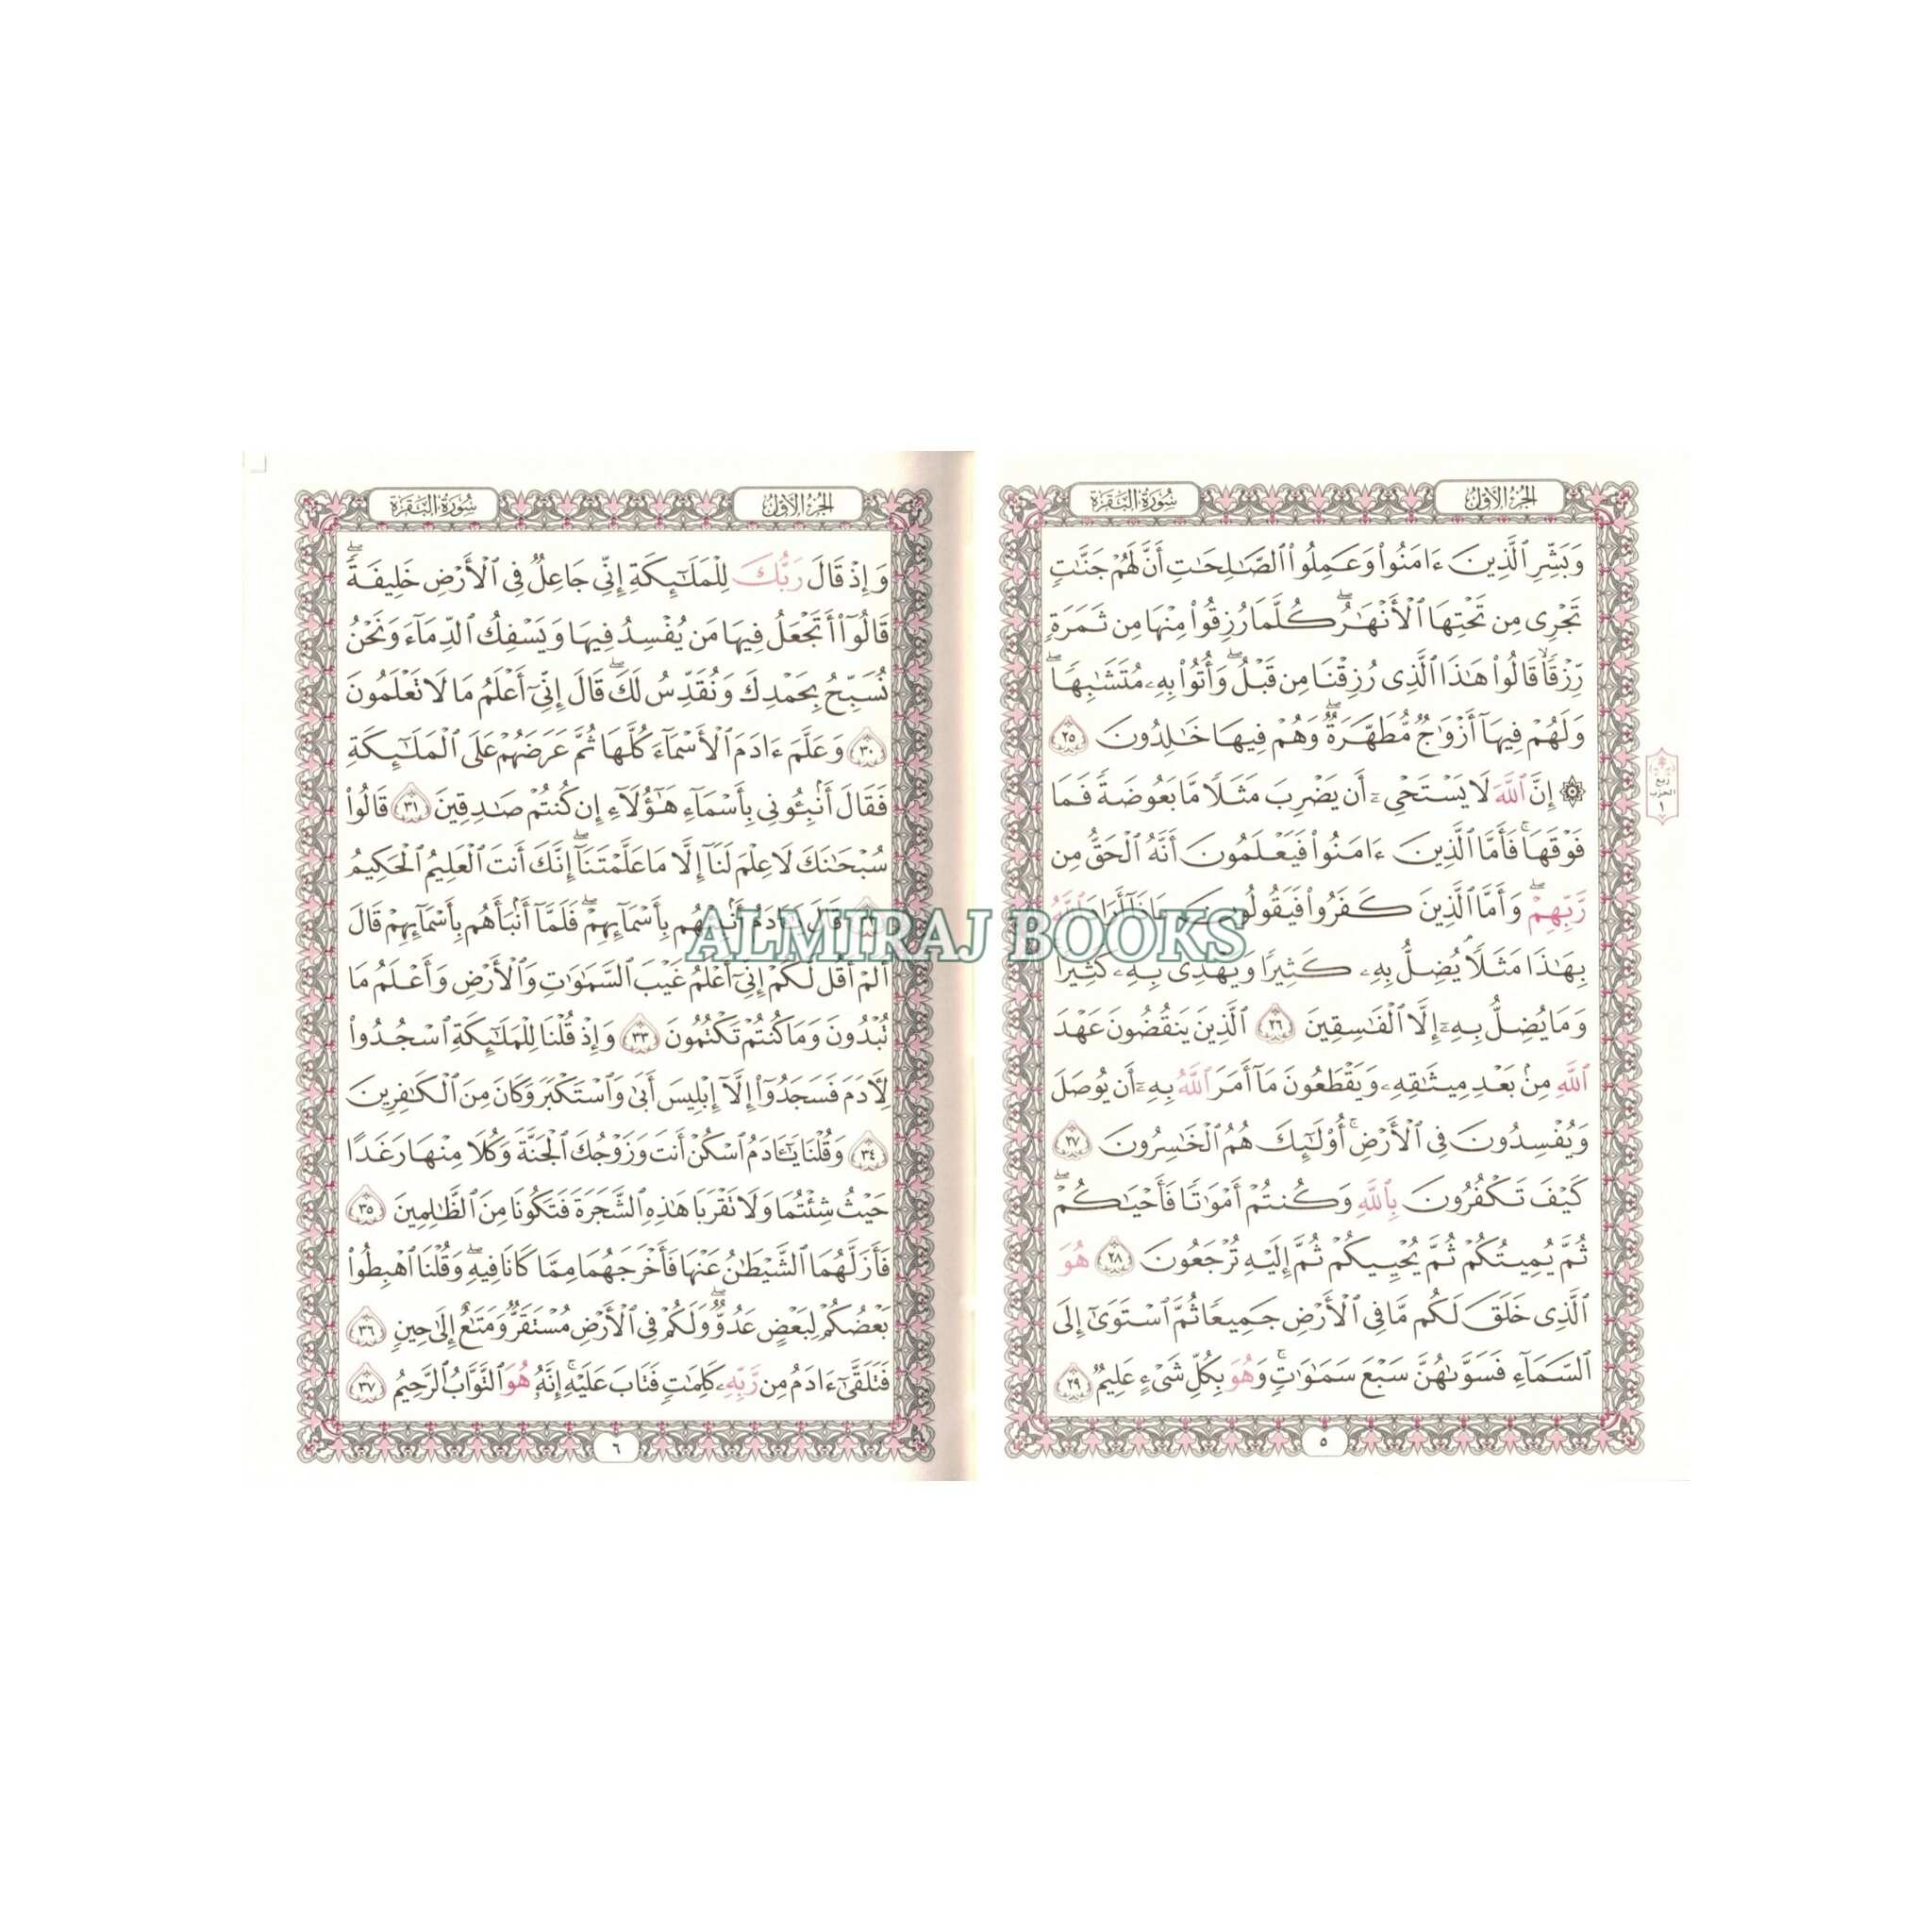 الجزء الأول
سورة البقرة
وَبَشِّرِ ٱلَّذِينَ ءَامَنُوا۟ وَعَمِلُوا۟ ٱلصَّٰلِحَٰتِ أَنَّ لَهُمْ جَنَّٰتٍ
تَجْرِى مِن تَحْتِهَا ٱلْأَنْهَٰرُ ۖ كُلَّمَا رُزِقُوا۟ مِنْهَا مِن ثَمَرَةٍ
رِّزْقًا ۙ قَالُوا۟ هَٰذَا ٱلَّذِى رُزِقْنَا مِن قَبْلُ ۖ وَأُتُوا۟ بِهِۦ مُتَشَٰبِهًا ۖ
وَلَهُمْ فِيهَآ أَزْوَٰجٌ مُّطَهَّرَةٌ ۖ وَهُمْ فِيهَا خَٰلِدُونَ ٢٥
۞ إِنَّ ٱللَّهَ لَا يَسْتَحْىِۦٓ أَن يَضْرِبَ مَثَلًا مَّا بَعُوضَةً فَمَا
فَوْقَهَا ۚ فَأَمَّا ٱلَّذِينَ ءَامَنُوا۟ فَيَعْلَمُونَ أَنَّهُ ٱلْحَقُّ مِن
رَّبِّهِمْ ۖ وَأَمَّا ٱلَّذِينَ كَفَرُوا۟ فَيَقُولُونَ مَاذَآ أَرَادَ ٱللَّهُ
بِهَٰذَا مَثَلًا ۘ يُضِلُّ بِهِۦ كَثِيرًا وَيَهْدِى بِهِۦ كَثِيرًا ۚ
وَمَا يُضِلُّ بِهِۦٓ إِلَّا ٱلْفَٰسِقِينَ ٢٦ ٱلَّذِينَ يَنقُضُونَ عَهْدَ
ٱللَّهِ مِنۢ بَعْدِ مِيثَٰقِهِۦ وَيَقْطَعُونَ مَآ أَمَرَ ٱللَّهُ بِهِۦٓ أَن يُوصَلَ
وَيُفْسِدُونَ فِى ٱلْأَرْضِ ۚ أُو۟لَٰٓئِكَ هُمُ ٱلْخَٰسِرُونَ ٢٧
كَيْفَ تَكْفُرُونَ بِٱللَّهِ وَكُنتُمْ أَمْوَٰتًا فَأَحْيَٰكُمْ ۖ
ثُمَّ يُمِيتُكُمْ ثُمَّ يُحْيِيكُمْ ثُمَّ إِلَيْهِ تُرْجَعُونَ ٢٨ هُوَ
ٱلَّذِى خَلَقَ لَكُم مَّا فِى ٱلْأَرْضِ جَمِيعًا ثُمَّ ٱسْتَوَىٰٓ إِلَى
ٱلسَّمَآءِ فَسَوَّىٰهُنَّ سَبْعَ سَمَٰوَٰتٍ ۚ وَهُوَ بِكُلِّ شَىْءٍ عَلِيمٌ ٢٩
٥
ربع
الحزب
١
الجزء الأول
سورة البقرة
وَإِذْ قَالَ رَبُّكَ لِلْمَلَٰٓئِكَةِ إِنِّى جَاعِلٌ فِى ٱلْأَرْضِ خَلِيفَةً ۖ
قَالُوٓا۟ أَتَجْعَلُ فِيهَا مَن يُفْسِدُ فِيهَا وَيَسْفِكُ ٱلدِّمَآءَ وَنَحْنُ
نُسَبِّحُ بِحَمْدِكَ وَنُقَدِّسُ لَكَ ۖ قَالَ إِنِّىٓ أَعْلَمُ مَا لَا تَعْلَمُونَ
٣٠ وَعَلَّمَ ءَادَمَ ٱلْأَسْمَآءَ كُلَّهَا ثُمَّ عَرَضَهُمْ عَلَى ٱلْمَلَٰٓئِكَةِ
فَقَالَ أَنۢبِـُٔونِى بِأَسْمَآءِ هَٰٓؤُلَآءِ إِن كُنتُمْ صَٰدِقِينَ ٣١ قَالُوا۟
سُبْحَٰنَكَ لَا عِلْمَ لَنَآ إِلَّا مَا عَلَّمْتَنَآ ۖ إِنَّكَ أَنتَ ٱلْعَلِيمُ ٱلْحَكِيمُ
٣٢ قَالَ يَٰٓـَٔادَمُ أَنۢبِئْهُم بِأَسْمَآئِهِمْ ۖ فَلَمَّآ أَنۢبَأَهُم بِأَسْمَآئِهِمْ قَالَ
أَلَمْ أَقُل لَّكُمْ إِنِّىٓ أَعْلَمُ غَيْبَ ٱلسَّمَٰوَٰتِ وَٱلْأَرْضِ وَأَعْلَمُ مَا
تُبْدُونَ وَمَا كُنتُمْ تَكْتُمُونَ ٣٣ وَإِذْ قُلْنَا لِلْمَلَٰٓئِكَةِ ٱسْجُدُوا۟
لِـَٔادَمَ فَسَجَدُوٓا۟ إِلَّآ إِبْلِيسَ أَبَىٰ وَٱسْتَكْبَرَ وَكَانَ مِنَ ٱلْكَٰفِرِينَ
٣٤ وَقُلْنَا يَٰٓـَٔادَمُ ٱسْكُنْ أَنتَ وَزَوْجُكَ ٱلْجَنَّةَ وَكُلَا مِنْهَا رَغَدًا
حَيْثُ شِئْتُمَا وَلَا تَقْرَبَا هَٰذِهِ ٱلشَّجَرَةَ فَتَكُونَا مِنَ ٱلظَّٰلِمِينَ ٣٥
فَأَزَلَّهُمَا ٱلشَّيْطَٰنُ عَنْهَا فَأَخْرَجَهُمَا مِمَّا كَانَا فِيهِ ۖ وَقُلْنَا ٱهْبِطُوا۟
بَعْضُكُمْ لِبَعْضٍ عَدُوٌّ ۖ وَلَكُمْ فِى ٱلْأَرْضِ مُسْتَقَرٌّ وَمَتَٰعٌ إِلَىٰ حِينٍ ٣٦
فَتَلَقَّىٰٓ ءَادَمُ مِن رَّبِّهِۦ كَلِمَٰتٍ فَتَابَ عَلَيْهِ ۚ إِنَّهُۥ هُوَ ٱلتَّوَّابُ ٱلرَّحِيمُ ٣٧
٦
ALMIRAJ BOOKS